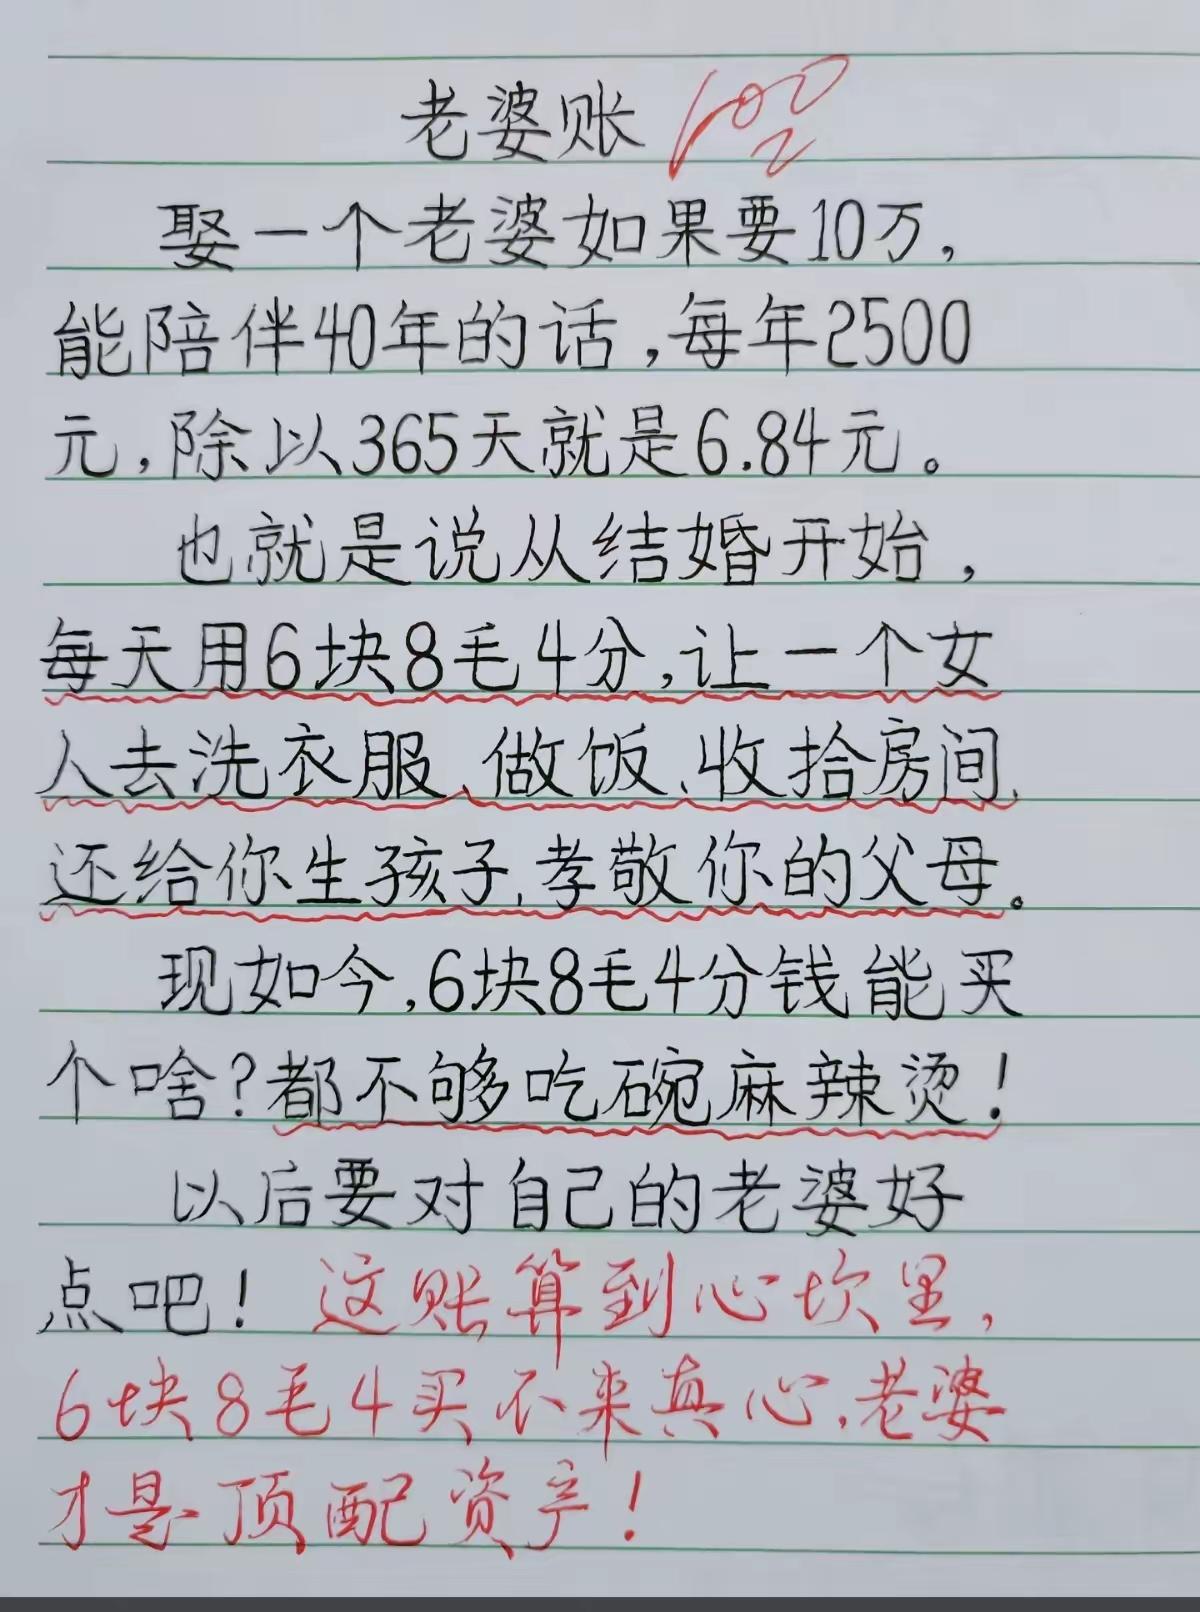 老婆账 100
娶一个老婆如果要10万,
能陪伴40年的话,每年2500
元,除以365天就是6.84元。
也就是说从结婚开始,
每天用6块8毛4分,让一个女
人去洗衣服、做饭、收拾房间、
还给你生孩子,孝敬你的父母。
现如今,6块8毛4分钱能买
个啥?都不够吃碗麻辣烫!
以后要对自己的老婆好
点吧!这账算到心坎里,
6块8毛4买不来真心,老婆
才是顶配资产!